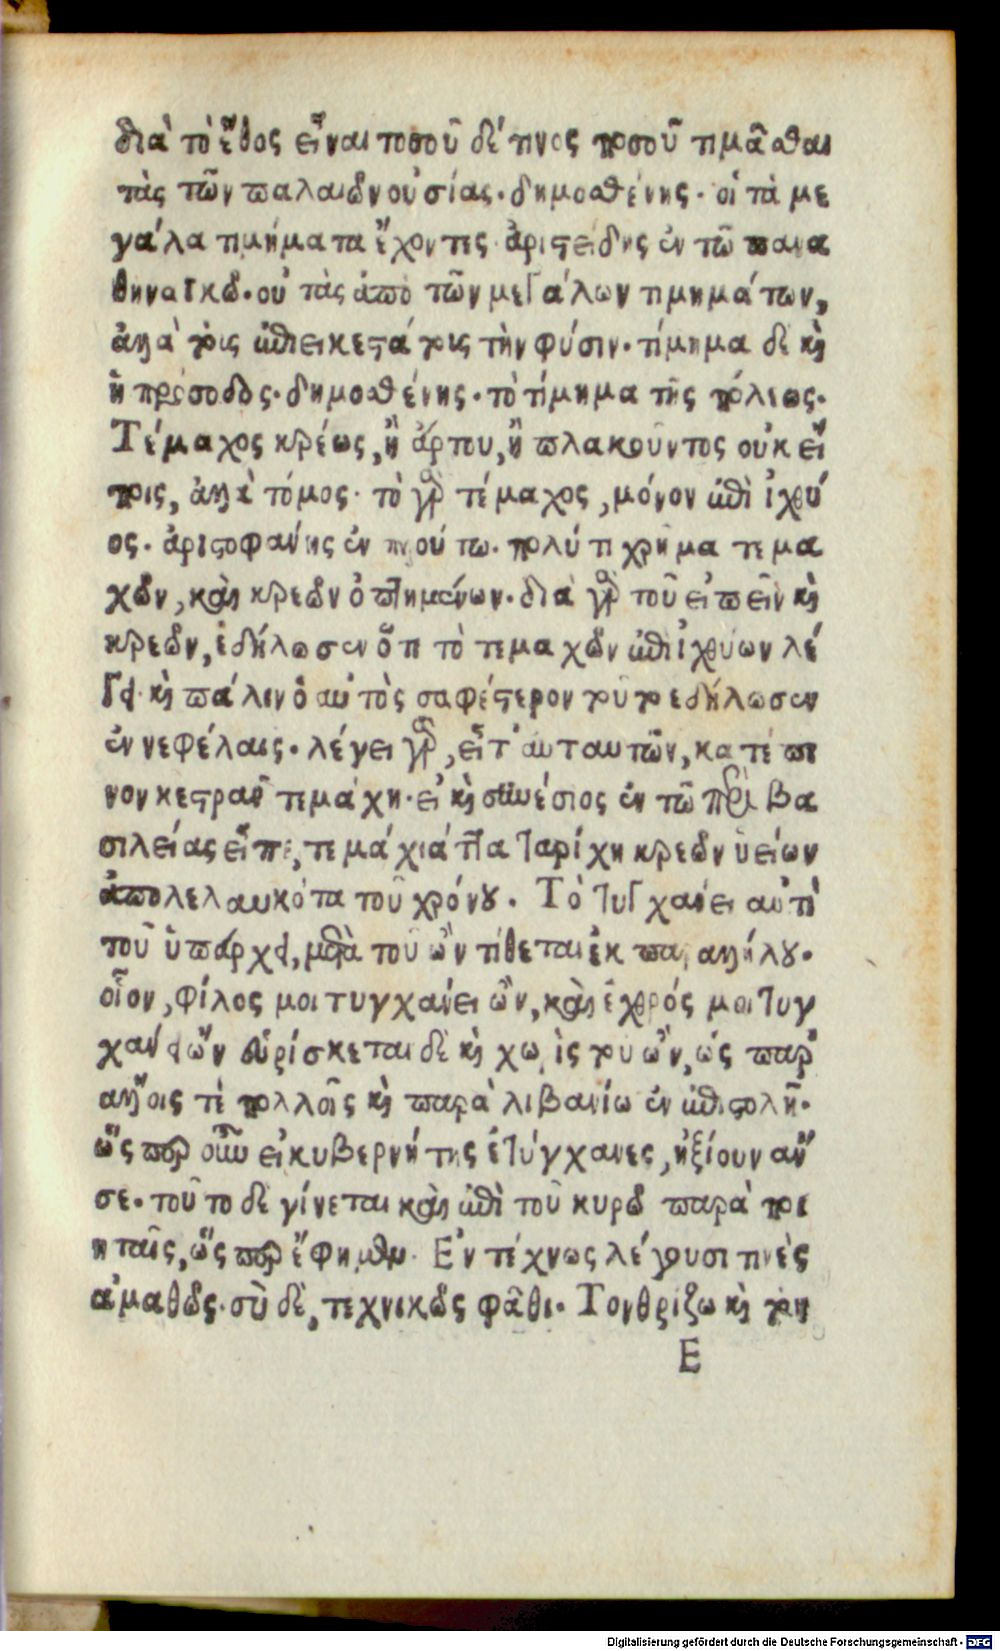 διὰ τὸ ἔθος εἶναι τοσοῦ δέ τινος ποσοῦ τιμᾶσθαι
τὰς τῶν παλαιῶν οὐσίας. δημοσθένης. οἱ τὰ με
γάλα τιμήματα ἔχοντες. ἀριστείδης ἐν τῶ πανα
θηναϊκῶ. οὐ τὰς ἀπὸ τῶν μεγάλων τιμημάτων,
ἀλλὰ τοῖς ἐπιεικεστάτοις τὴν φύσιν. τίμημα δὲ καὶ
ἡ πρόσοδος. δημοσθένης. τὸ τίμημα τῆς πόλεως.
Τέμαχος κρέως, ἢ ἄρτου, ἢ πλακοῦντος οὐκ εἴ
ποις, ἀλλὰ τόμος. τὸ γὰρ τέμαχος, μόνον ἐπὶ ἰχθύ
ος. ἀριστοφάνης ἐν πλούτω. πολύ τι χρῆμα τεμα
χῶν, καὶ κρεῶν ὀπτημένων. διὰ γὰρ τοῦ εἰπεῖν καὶ
κρεῶν, ἐδήλωσεν ὅτι τὸ τεμαχῶν ἐπὶ ἰχθύων λέ
γει. καὶ πάλιν ὁ αὐτὸς σαφέστερον τοῦτο ἐδήλωσεν
ἐν νεφέλαις. λέγει γὰρ, εἶτ' αυταυτῶν, κατέπι
νον κεστρᾶν τεμάχη. εἰ καὶ συνέσιος ἐν τῶ περὶ βα
σιλείας εἶπε, τεμάχιά τινα ταρίχη κρεῶν ὑείων
ἀπολελαυκότα τοῦ χρόνου. Τὸ τυγχάνει αὐτὶ
τοῦ ὑπάρχει, μετὰ τοῦ ὢν τίθεται ἐκ παραλλήλου.
οἷον, φίλος μοι τυγχάνει ὢν, καὶ ἐχθρός μοι τυγ
χάνει ὤν εὑρίσκεται δὲ καὶ χωρὶς τοῦ ὢν, ὡς παρ'
ἄλλοις τὲ πολλοῖς καὶ παρὰ λιβανίω ἐν ἐπιστολῆ.
ὥσπερ οὖν εἰ κυβερνήτης ἐτύγχανες, ἠξίουν ἄν
σε. τοῦτο δὲ γίνεται καὶ ἐπὶ τοῦ κυρῶ παρὰ ποι
ηταῖς, ὥσπερ ἔφημεν. Ἐντέχνως λέγουσι τινὲς
ἀμαθῶς. σὺ δὲ, τεχνικῶς φᾶθι. Τονθρίζω καὶ τον
Ε
Digitalisierung gefördert durch die Deutsche Forschungsgemeinschaft - DFG